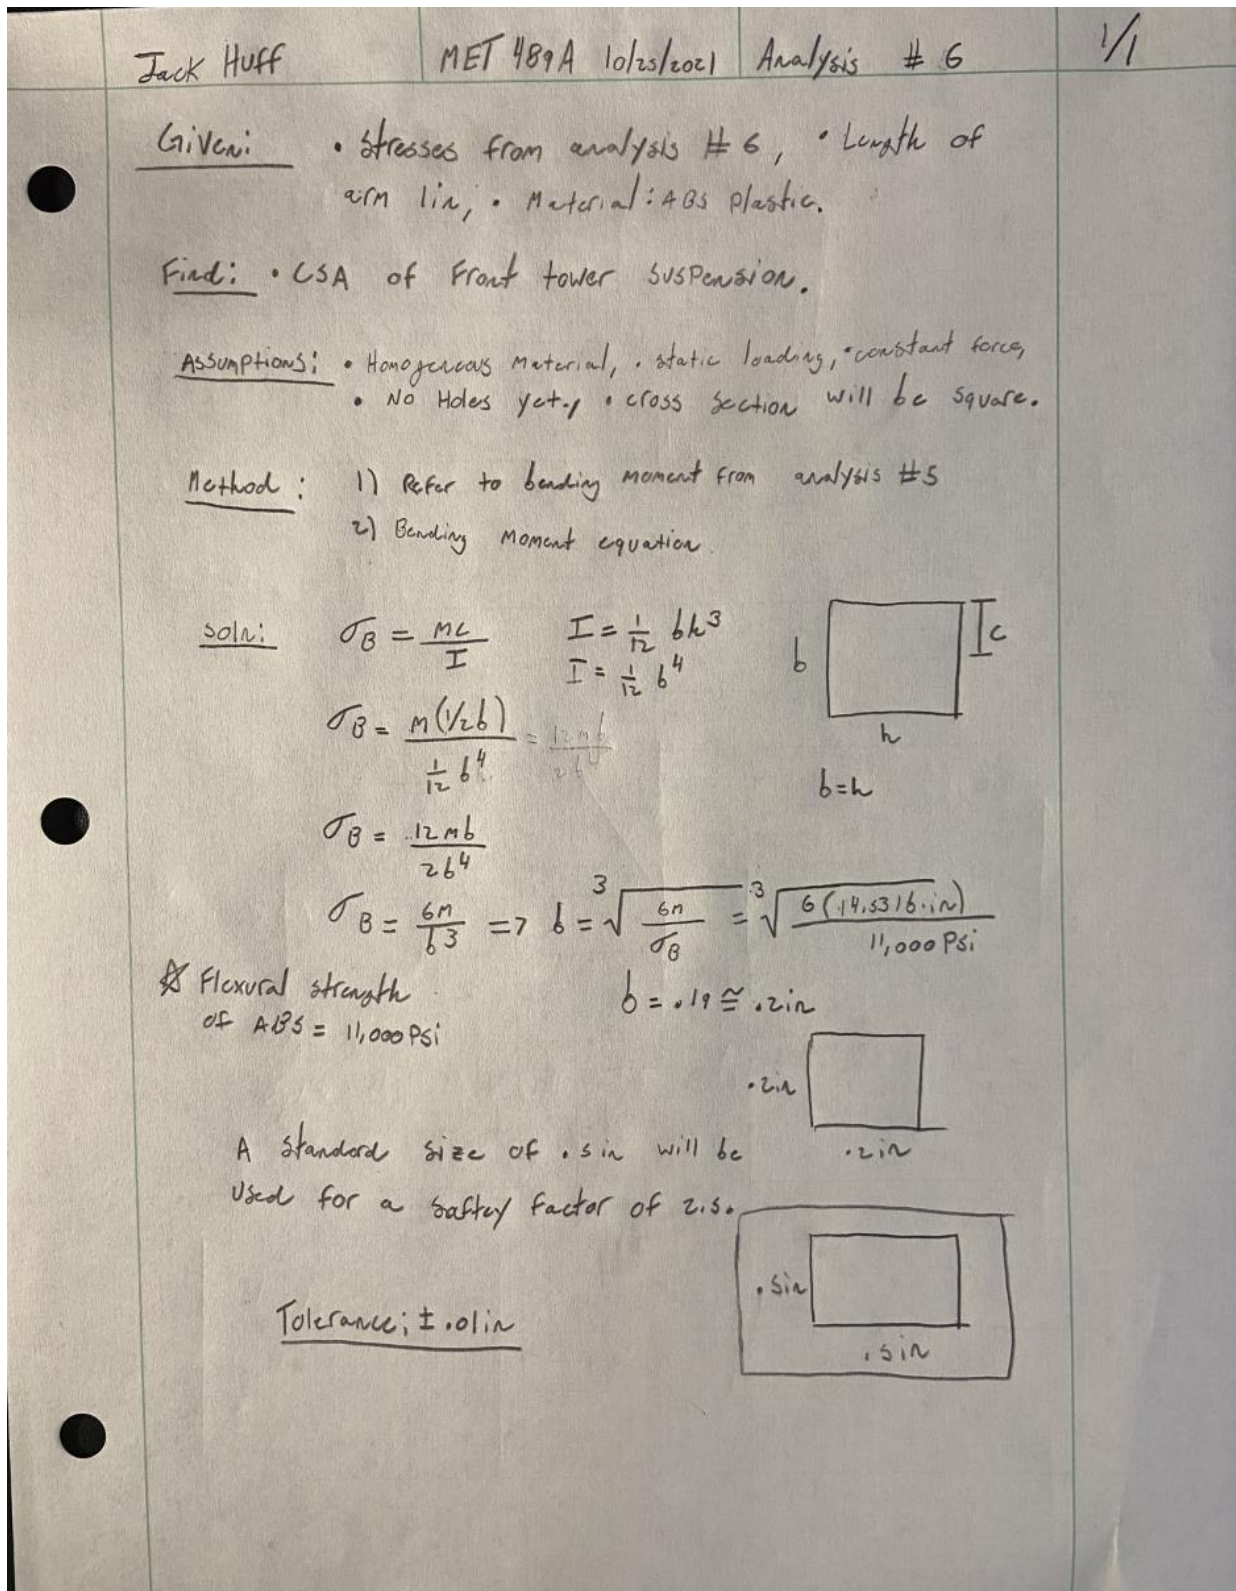 Jack Huff MET 489A 10/25/2021 Analysis # 6 1/1
Given: • Stresses from analysis # 6, • Length of
arm 1in, • Material: ABS plastic.
Find: • CSA of Front tower suspension.
Assumptions: • Homogeneous Material, • static loading, • constant force,
• No Holes yet, • cross section will be square.
Method: 1) Refer to bending moment from analysis #5
2) Bending moment equation.
Soln: σB = MC/I I = 1/12 bh³ b c
I = 1/12 b⁴
σB = M(1/2b) / 1/12 b⁴ = 12Mb/2b⁴ h
b=h
σB = 12Mb/2b⁴
σB = 6M/b³ => b = ³√(6M/σB) = ³√(6(14.53lb·in)/11,000 Psi)
☆ Flexural strength b = .19 ≅ .2in
of ABS = 11,000 Psi
.2in
A standard size of .5in will be .2in
used for a saftey factor of 2.5.
.5in
Tolerance; ± .01in
.5in